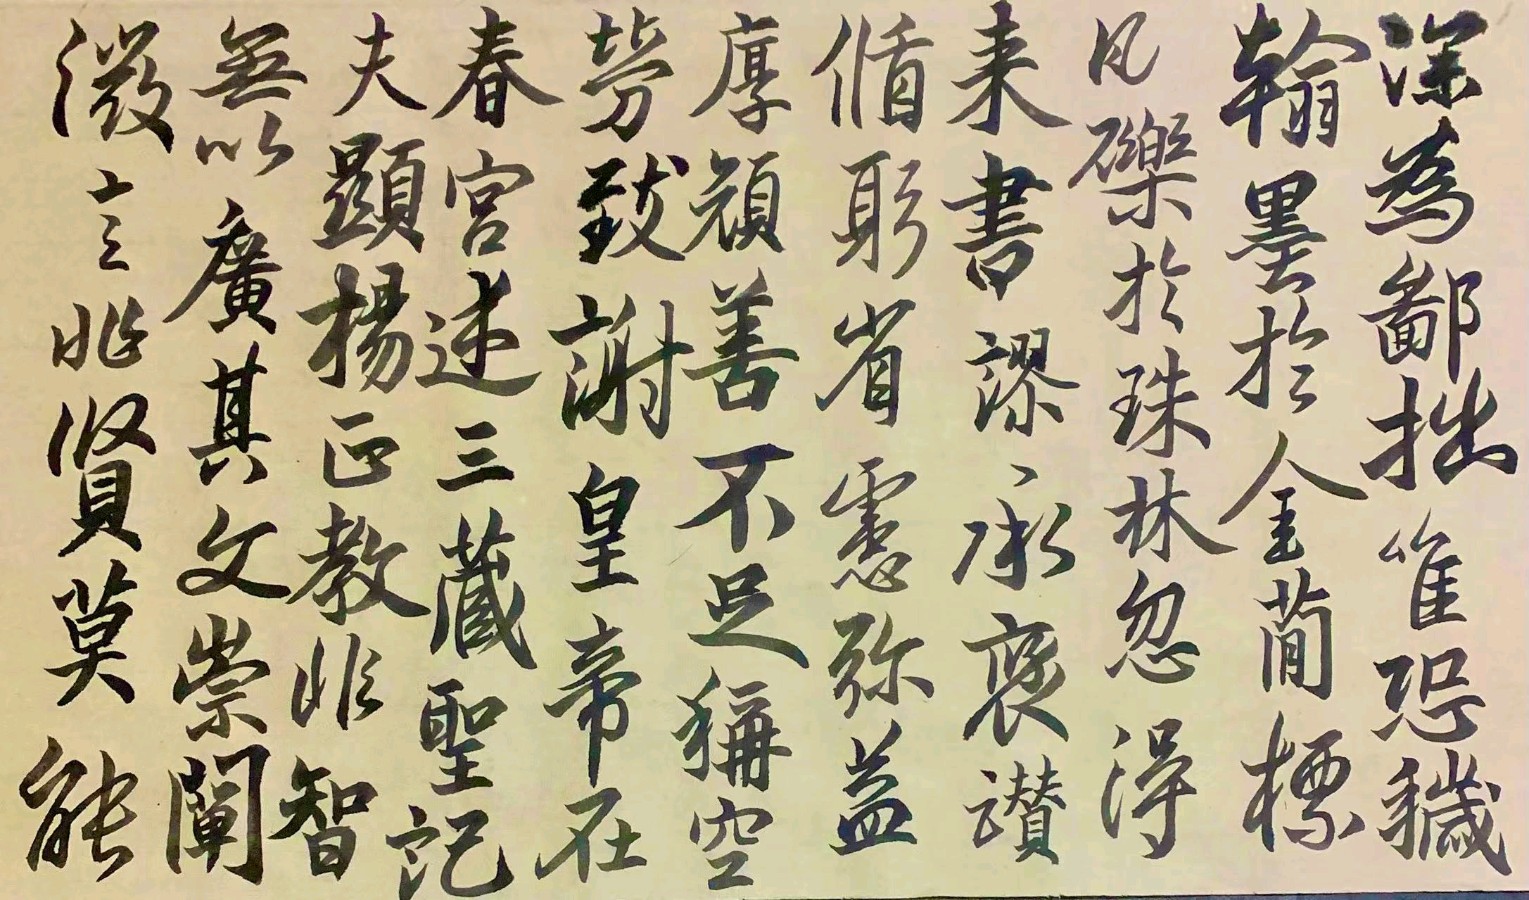 深為鄙拙唯恐穢
翰墨於金簡標
瓦礫於珠林忽得
来書謬承褒讃
循躬省慮弥益
厚顔善不足稱空
勞致謝皇帝在
春宮述三藏聖記
夫顯揚正教非智
無以廣其文崇闡
微言非賢莫能